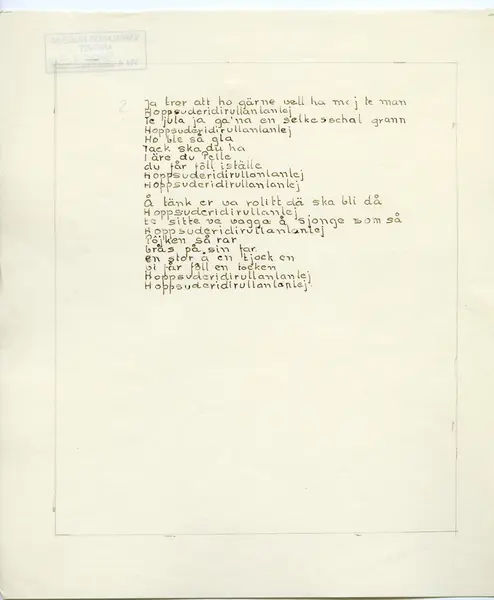 2
Ja tror att ho gärne vell ha mej te man
Hoppsuderidirullanlanlej
Te Jula ja ga'na en selkesschal grann
Hoppsuderidirullanlanlej
Ho ble så gla
Tack ska du ha
I äre du Pelle
du fårföll iställe
Hoppsuderidirullanlanlej
Hoppsuderidirullanlanlej
Å tänk er va rolitt dä ska bli då
Hoppsuderidirullanlej
te sitte ve vagga å sjonge som så
Hoppsuderidirullanlanlej
Pöjken så rar
brås på sin far
en stor å en tjock en
vi får föll en tocken
Hoppsuderidirullanlanlej
Hoppsuderidirullanlanlej